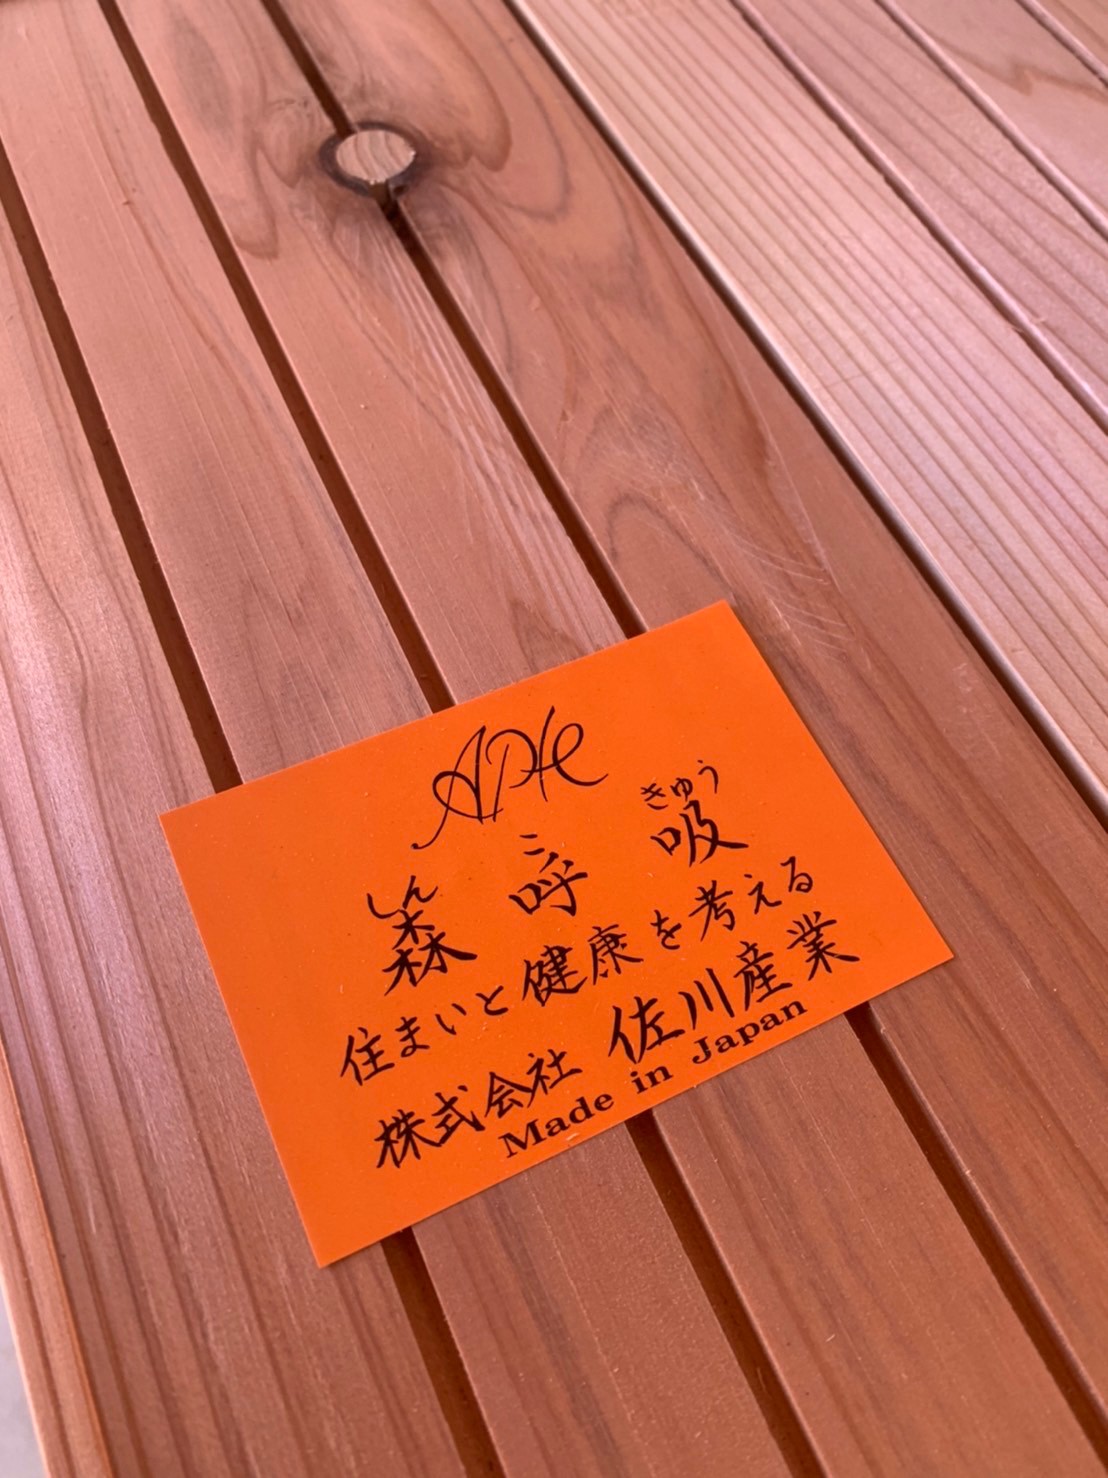 APH
しん こ きゅう
森 呼 吸
住まいと健康を考える
株式会社 佐川産業
Made in Japan